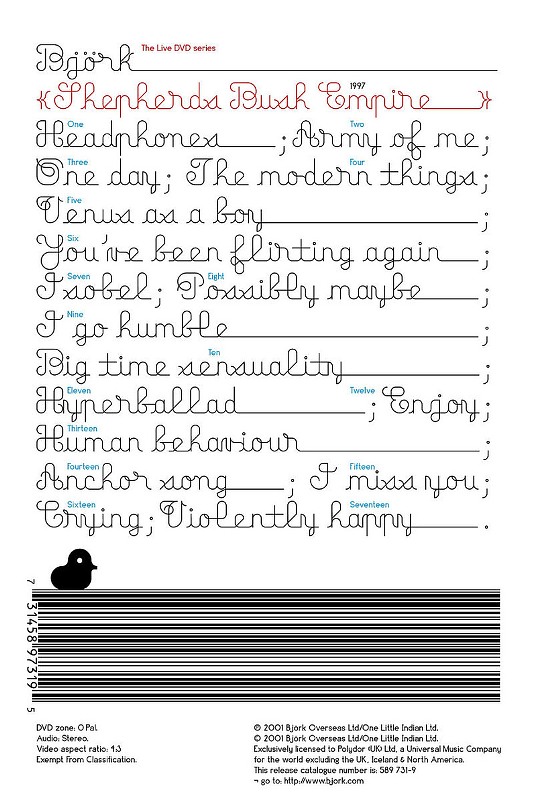 Björk The Live DVD series
1997
{Shepherds Bush Empire}
One Two
Headphones; Army of me;
Three Four
One day; The modern things;
Five
Venus as a boy;
Six
You've been flirting again;
Seven Eight
Isobel; Possibly maybe;
Nine
I go humble;
Ten
Big time sensuality;
Eleven Twelve
Hyperballad; Enjoy;
Thirteen
Human behaviour;
Fourteen Fifteen
Anchor song; I miss you;
Sixteen Seventeen
Crying; Violently happy.
7 31458 97319 5
DVD zone: 0 Pal.
Audio: Stereo.
Video aspect ratio: 4:3
Exempt from Classification.
℗ 2001 Björk Overseas Ltd/One Little Indian Ltd.
© 2001 Björk Overseas Ltd/One Little Indian Ltd.
Exclusively licensed to Polydor (UK) Ltd, a Universal Music Company
for the world excluding the UK, Iceland & North America.
This release catalogue number is: 589 731-9
¬ go to: http://www.bjork.com